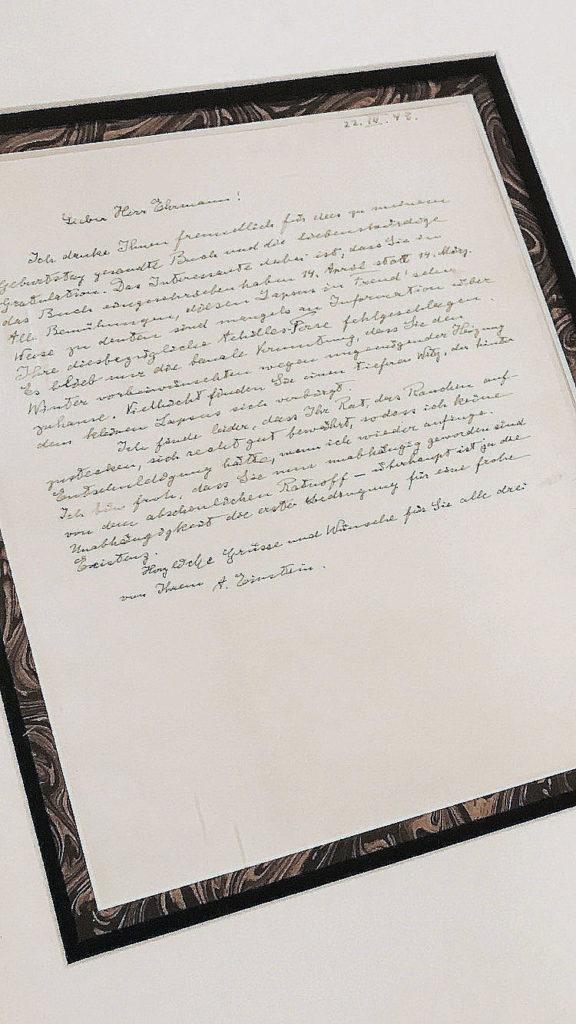 22.IV.48.
Lieber Herr Ehrmann!
Ich danke Ihnen freundlich für das zu meinem
Geburtstag gesandte Buch und die liebenswürdige
Gratulation. Das Interessante dabei ist, dass Sie in
das Buch eingeschrieben haben 14. April statt 14. März.
Alle Bemühungen, diesen Lapsus in Freud'scher
Weise zu deuten sind mangels an Information über
Ihre diesbezügliche Achilles-Ferse fehlgeschlagen.
Es blieb nur die banale Vermutung, dass Sie den
Winter vorbeiwünschten wegen ungenügender Heizung
zuhause. Vielleicht finden Sie einen tieferen Witz, der hinter
dem kleinen Lapsus sich verbirgt.
Ich finde leider, dass Ihr Rat, das Rauchen auf-
zustecken, sich recht gut bewährt, sodass ich keine
Entschuldigung hätte, wenn ich wieder anfinge.
Ich bin froh, dass Sie nun unabhängig geworden sind
von dem abscheulichen Ratnoff – überhaupt ist ja die
Unabhängigkeit die erste Bedingung für eine frohe
Existenz.
Herzliche Grüsse und Wünsche für Sie alle drei
von Ihrem A. Einstein.